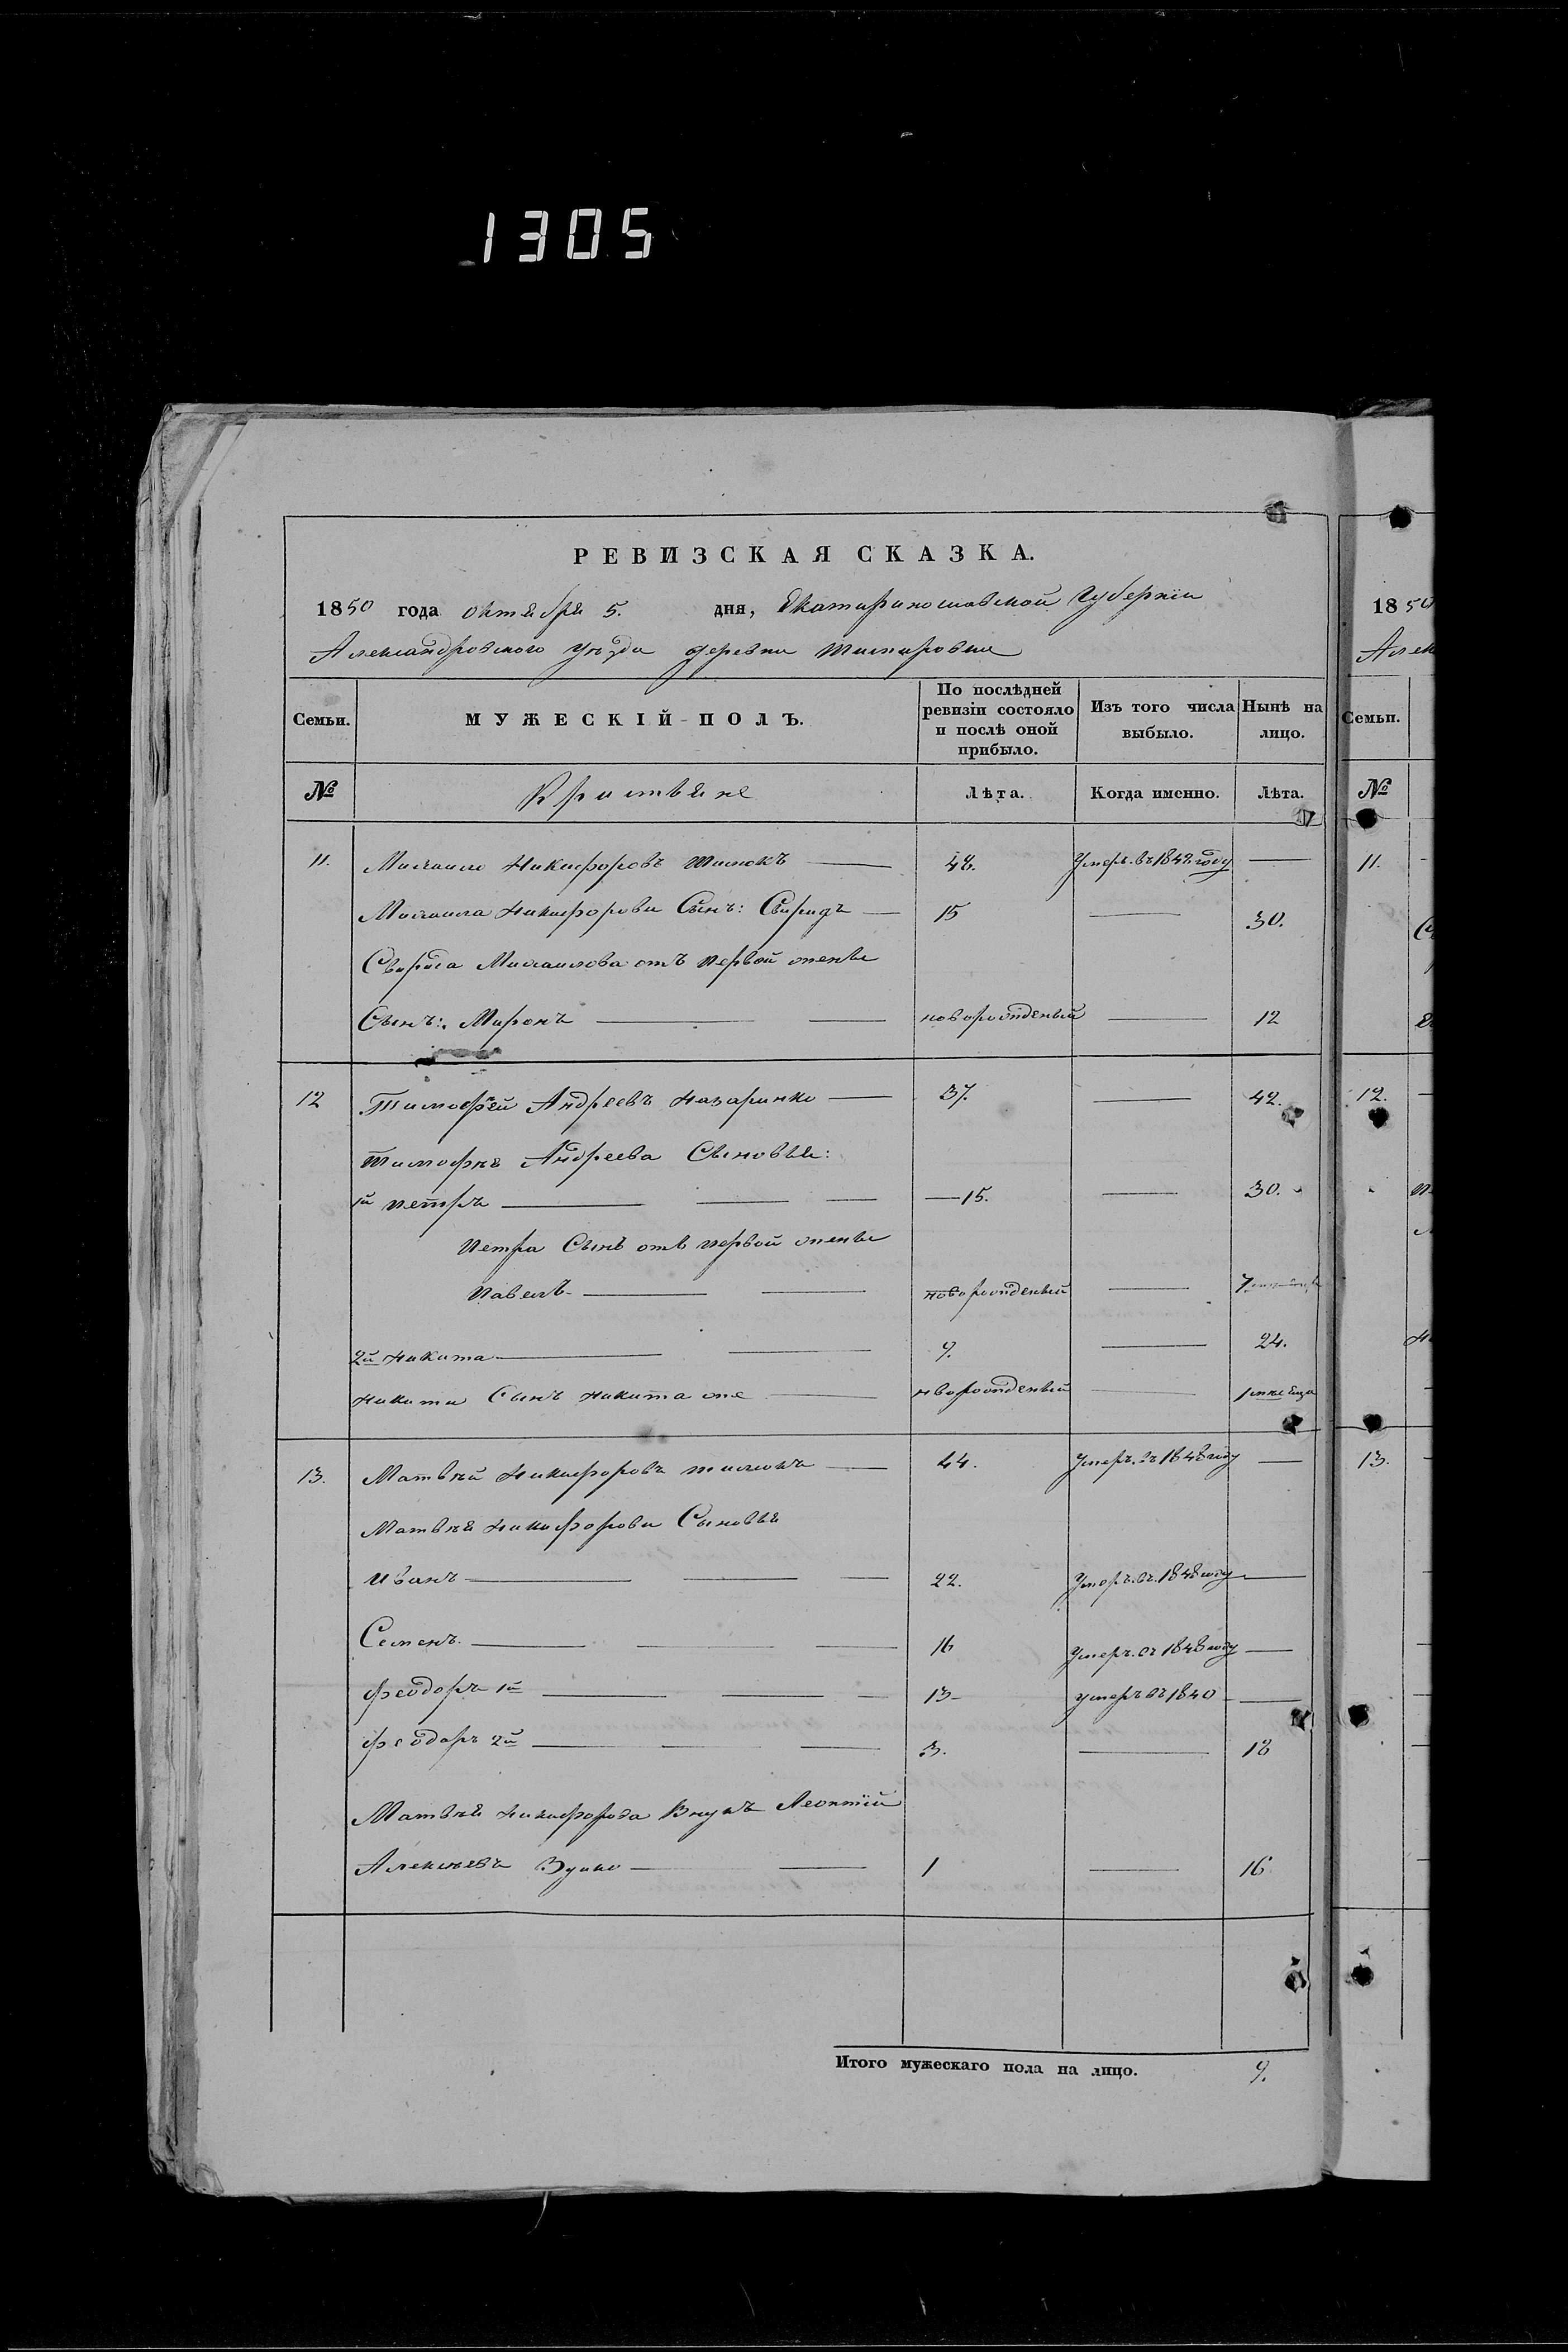 1305
РЕВИЗСКАЯ СКАЗКА.
1850 года октября 5. дня, Екатеринославской Губерніи
Александровского уѣзда деревни
Семьи. МУЖЕСКІЙ ПОЛЪ. По послѣдней ревизіи состояло и послѣ оной прибыло. Изъ того числа выбыло. Нынѣ на лицо.
№ Лѣта. Когда именно. Лѣта.
11. Михаило Никифоровъ 48. Умеръ въ 1849 году
Михаила Никифорова Сынъ: Свиридъ 15 30.
Свирида Михаилова отъ первой жены
Сынъ: Миронъ новорожденый 12
12 Тимофѣй Андреевъ Назаринко 37. 42.
Тимофѣя Андреева Сыновья:
1й Петръ 15. 30.
Петра Сынъ отъ первой жены
Павелъ новорожденый 7
2й Никита 9. 24.
Никиты Сынъ Никита же новорожденый 1 месяца
13. Матвѣй Никифоровъ 44. Умеръ въ 1848 году
Матвѣя Никифорова Сыновья
Иванъ 22. Умеръ въ 1848 году
Семенъ 16 Умеръ въ 1848 году
Феодоръ 1й 13 умеръ въ 1840
Феодоръ 2й 3. 18
Матвѣя Никифорова Внукъ Леонтій
Алексѣевъ 1 16
Итого мужескаго пола на лицо. 9.
1850
Алек
Семьи.
№
11.
12.
13.